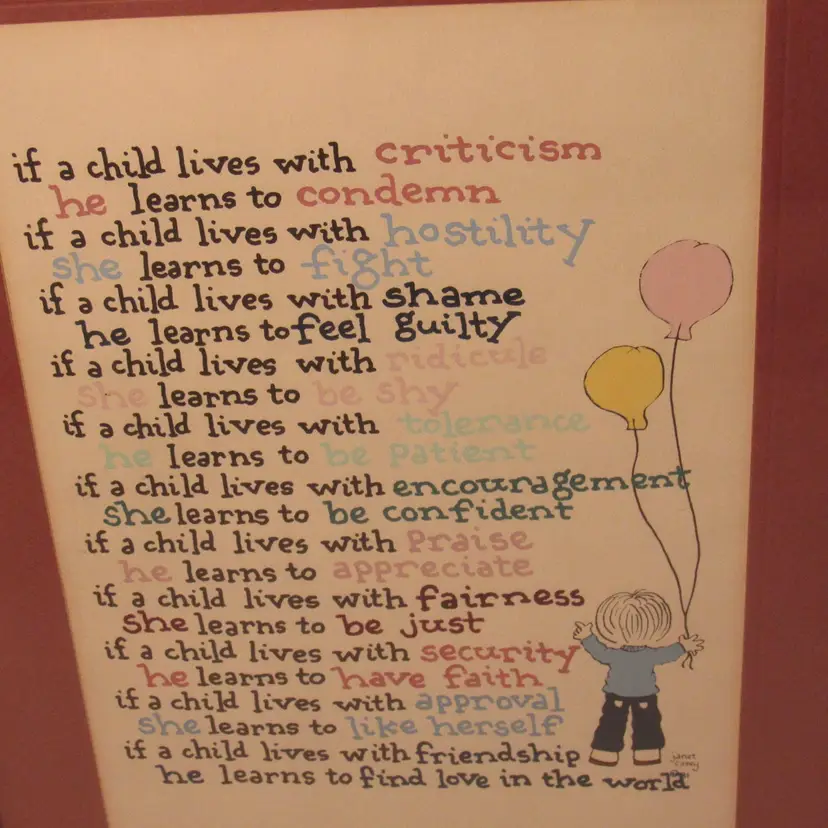 if a child lives with criticism
he learns to condemn
if a child lives with hostility
she learns to fight
if a child lives with shame
he learns to feel guilty
if a child lives with ridicule
she learns to be shy
if a child lives with tolerance
he learns to be patient
if a child lives with encouragement
she learns to be confident
if a child lives with praise
he learns to appreciate
if a child lives with fairness
she learns to be just
if a child lives with security
he learns to have faith
if a child lives with approval
she learns to like herself
if a child lives with friendship
he learns to find love in the world
janet